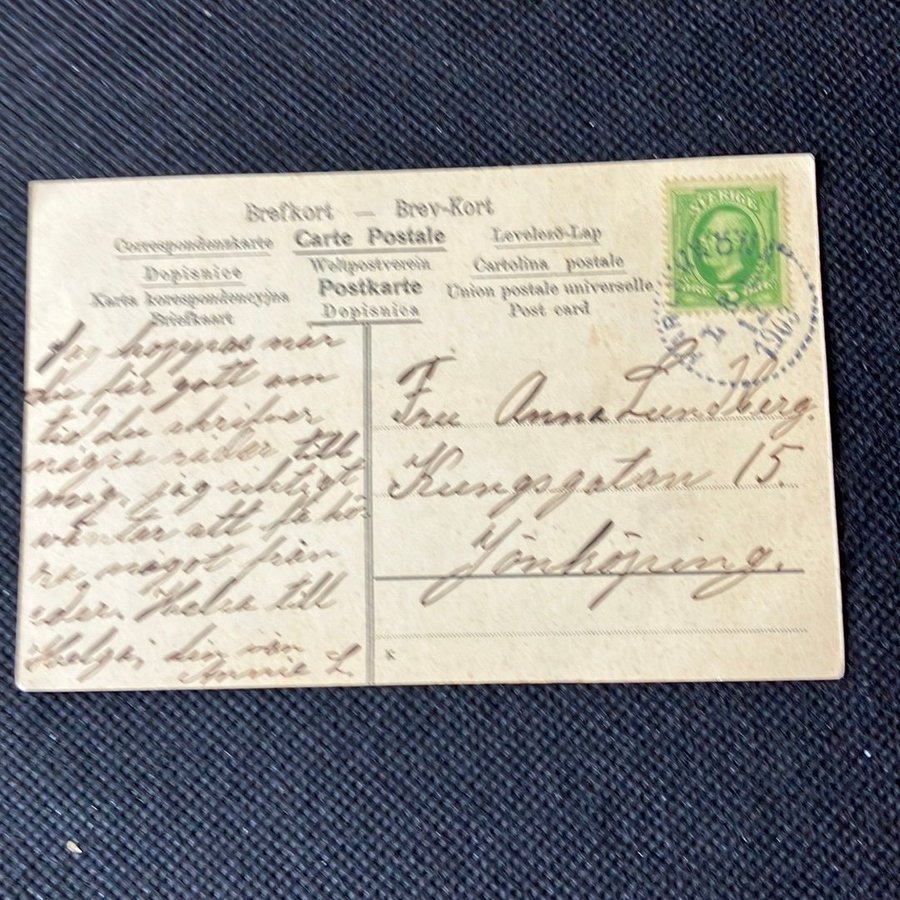 Brefkort — Brev-Kort
Correspondenskarte Carte Postale Levelező-Lap
Dopisnice Weltpostverein Cartolina postale
Karta korespondencyjna Postkarte Union postale universelle
Briefkaart Dopisnica Post card
SVERIGE
1905
Jag hoppas när
du får gott om
tid du skrifver
några rader till
mig. jag riktigt
väntar att få hö-
ra något från
eder. Helsa till
Helga, din vän
Annie L.
Fru Anna Lundberg.
Kungsgatan 15.
Jönköping.
K